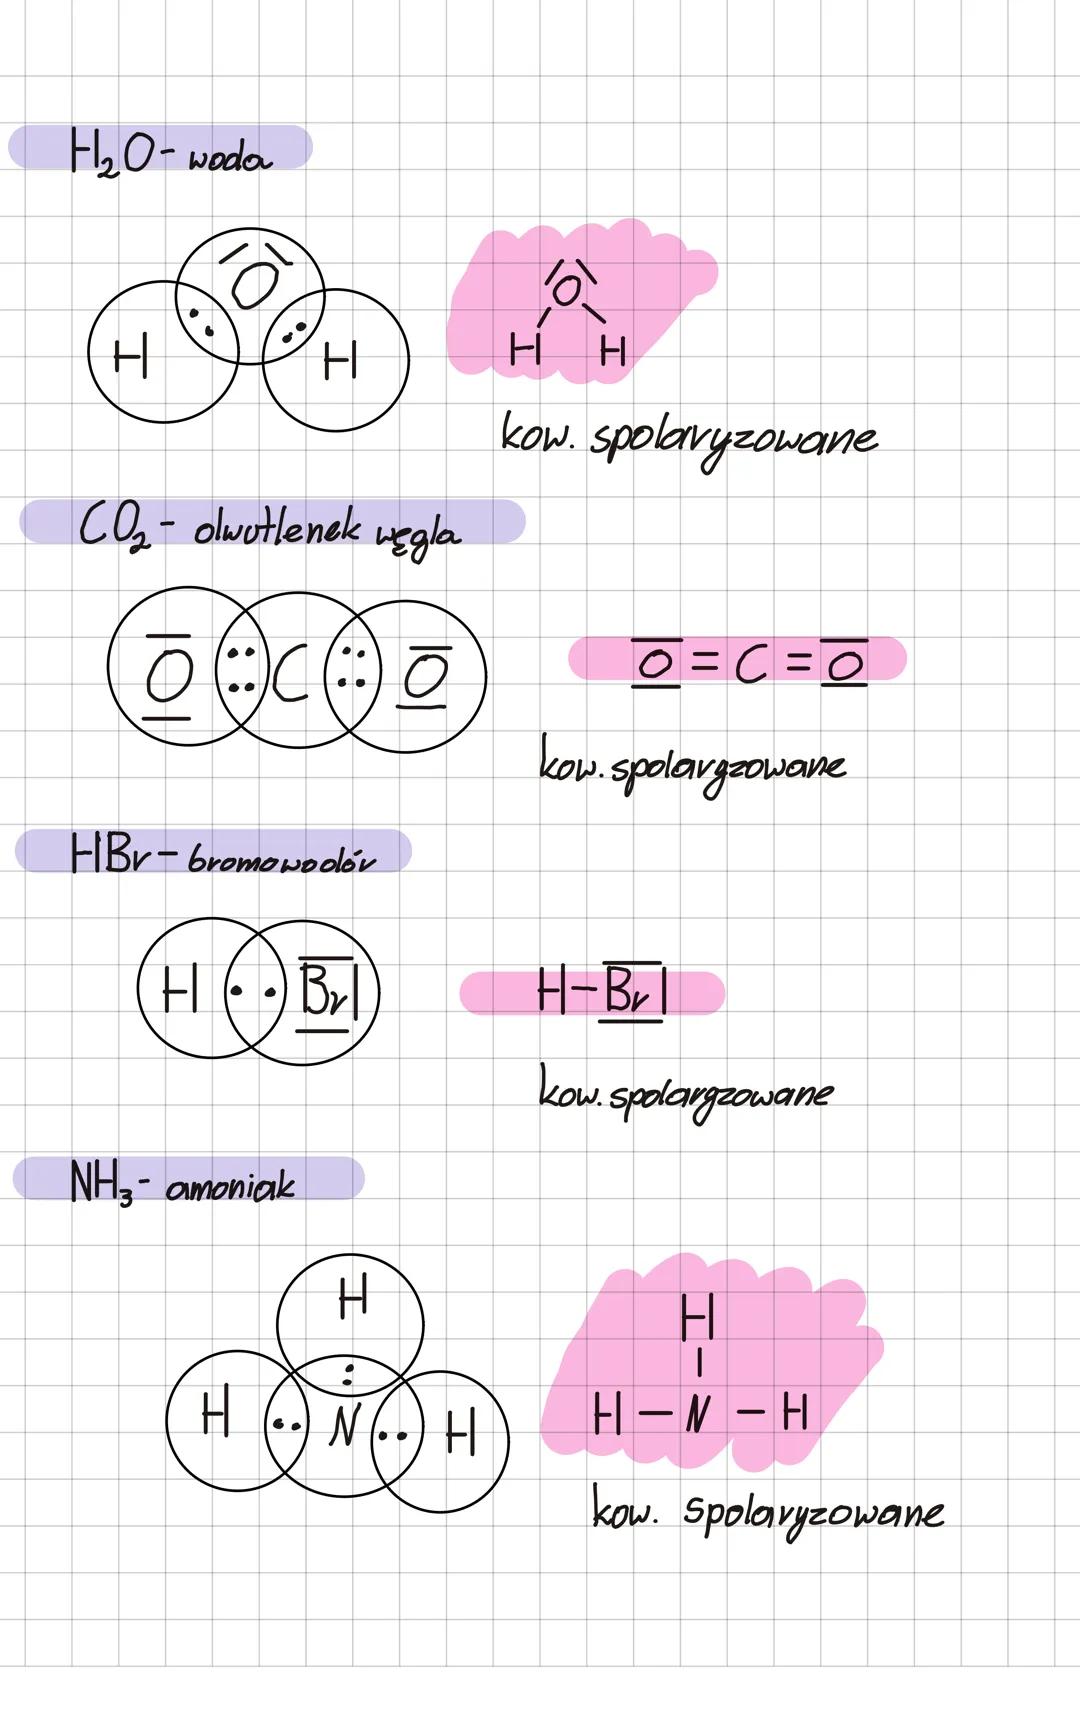 H₂O - woda
H O H
O
H H
kow. spolaryzowane
CO₂ - dwutlenek węgla
O C O
O = C = O
kow. spolaryzowane
HBr - bromowodór
H Br
H - Br
kow. spolaryzowane
NH₃ - amoniak
H
H N H
H
H - N - H
kow. spolaryzowane